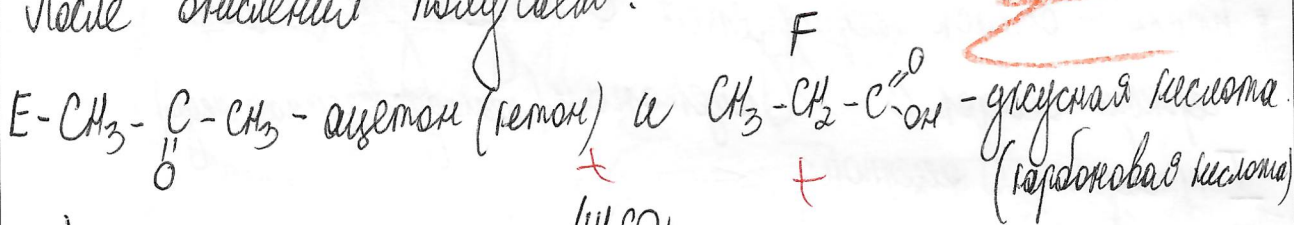 После окисления получаем:
F
E - CH₃ - C - CH₃ - ацетон (кетон) и CH₃ - CH₂ - C = O - уксусная кислота.
O OH (карбоновая кислота)
+ +